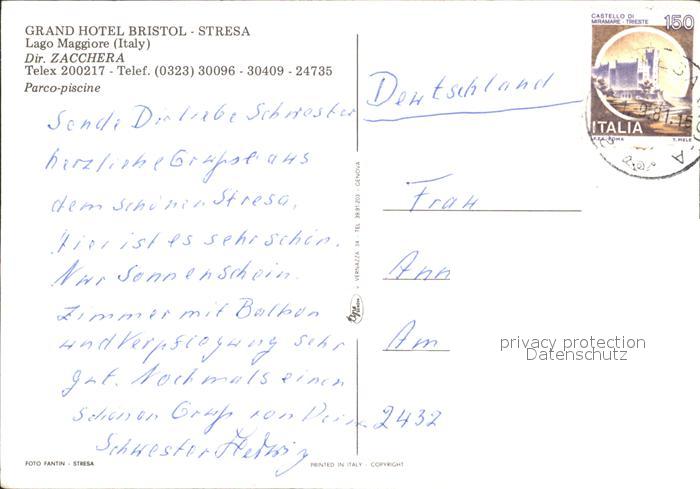 GRAND HOTEL BRISTOL - STRESA
Lago Maggiore (Italy)
Dir. ZACCHERA
Telex 200217 - Telef. (0323) 30096 - 30409 - 24735
Parco-piscine
Sende Dir liebe Schwester
herzliche Grüsse aus
dem schönen Stresa.
Hier ist es sehr schön.
Nur Sonnenschein.
Zimmer mit Balkon
und Verpflegung sehr
gut. Nochmals einen
schönen Gruß von Deine
Schwester Hedwig
FOTO FANTIN - STRESA
PRINTED IN ITALY - COPYRIGHT
VERNAZZA 34 - TEL. 39.91.203 - GENOVA
CASTELLO DI
MIRAMARE - TRIESTE
150
ITALIA
Deutschland
Frau
Ann
Am
2432
privacy protection
Datenschutz